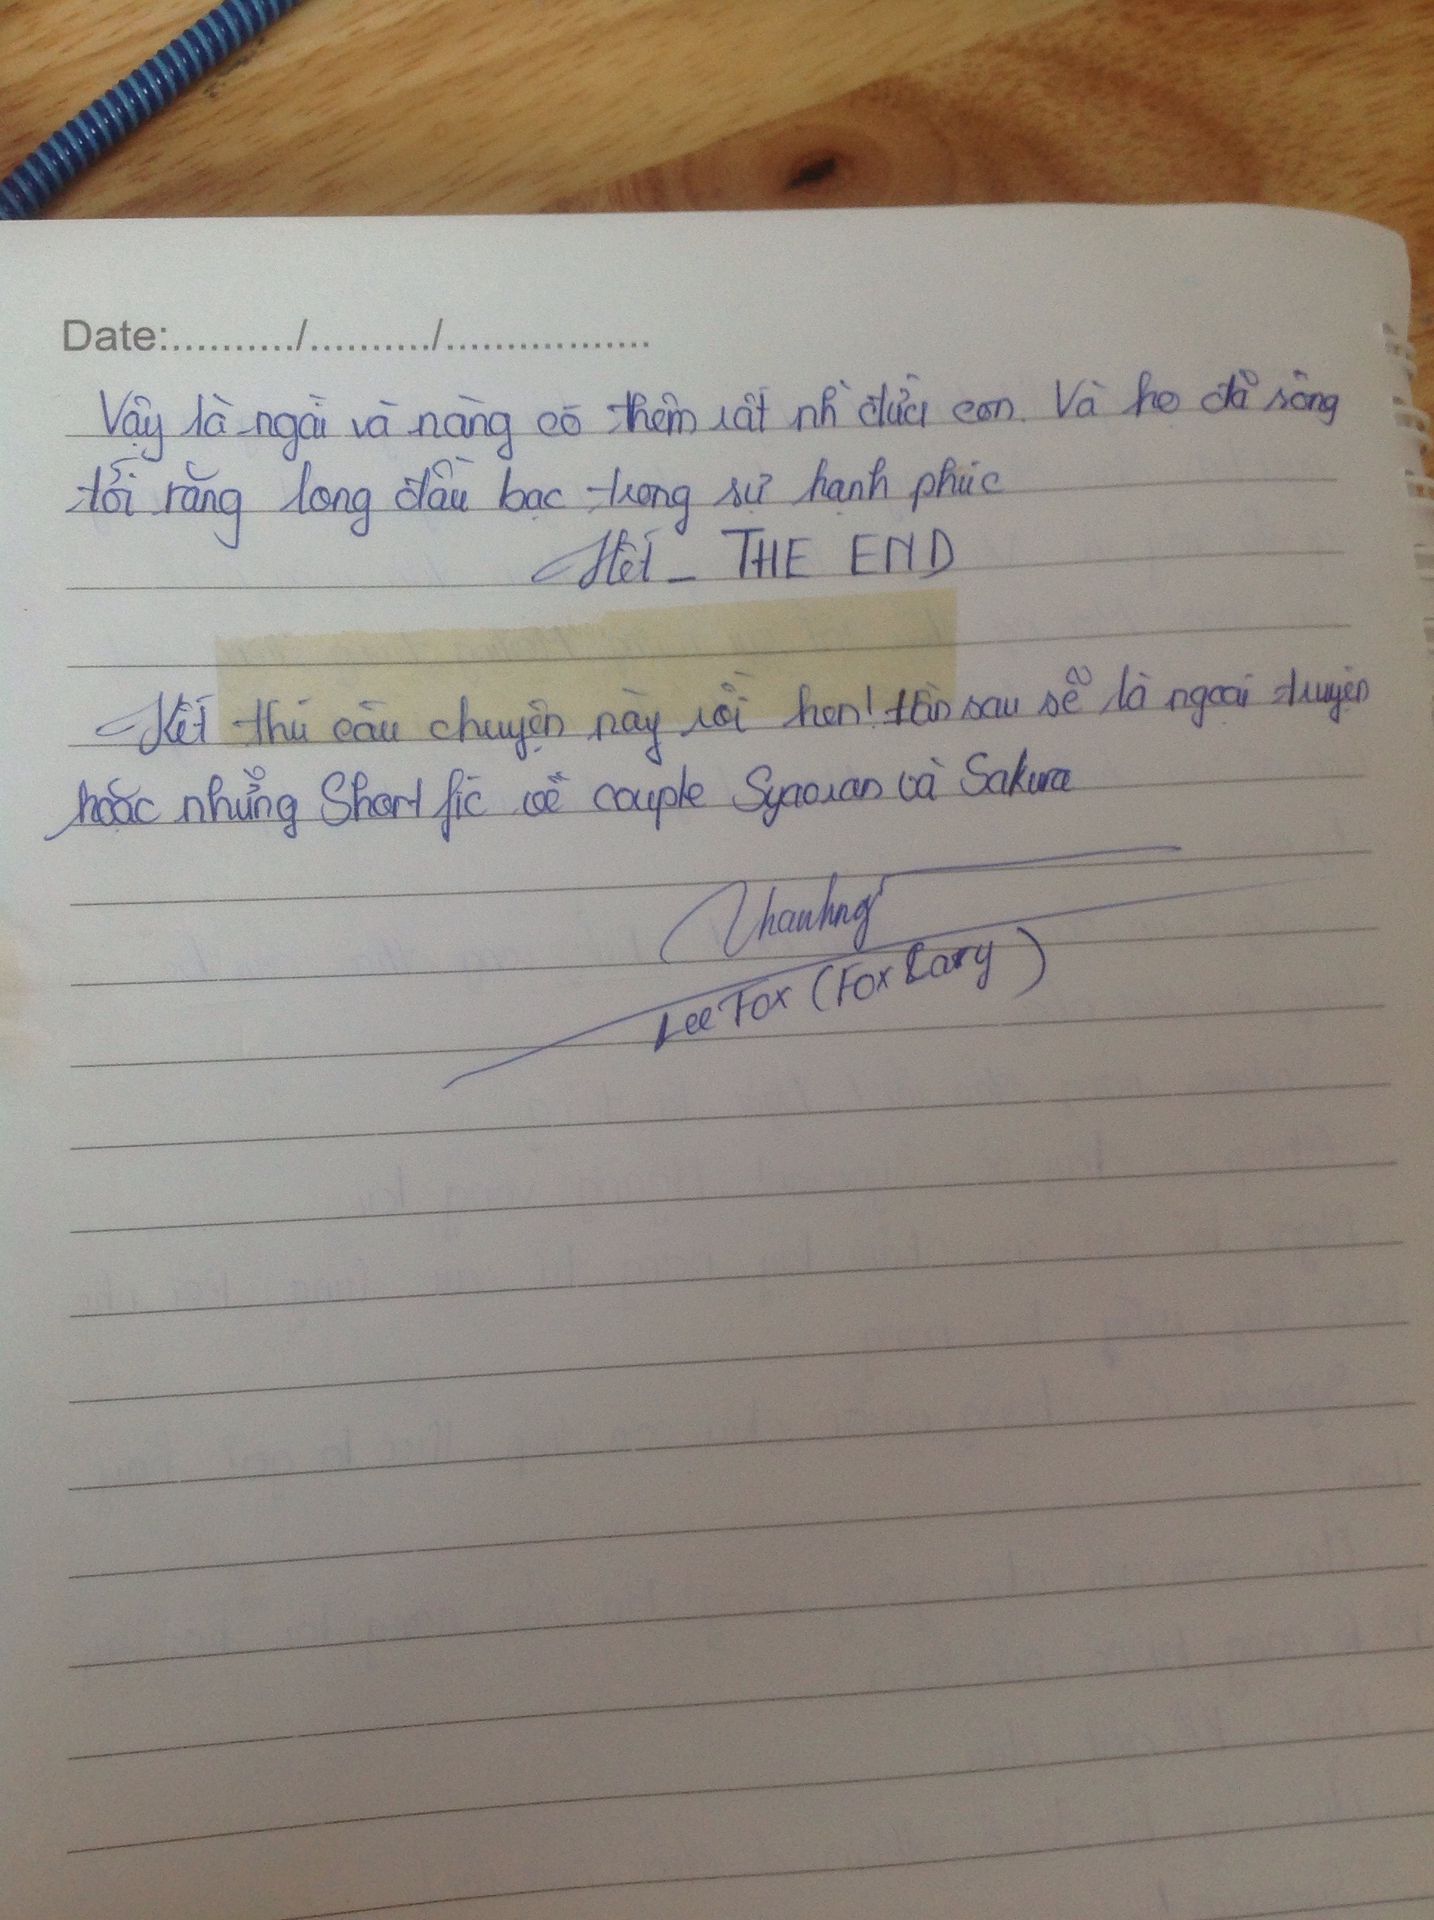 Date:........../........../.................
Vậy là ngài và nàng có thêm rất nh đứa con. Và họ đã sống
tới răng long đầu bạc trong sự hạnh phúc
Hết _ THE END
Kết thú câu chuyện này rồi hen! tần sau sẽ là ngoại truyện
hoặc những Short fic về couple Syaoran và Sakura
Lee Fox (Fox Lary)